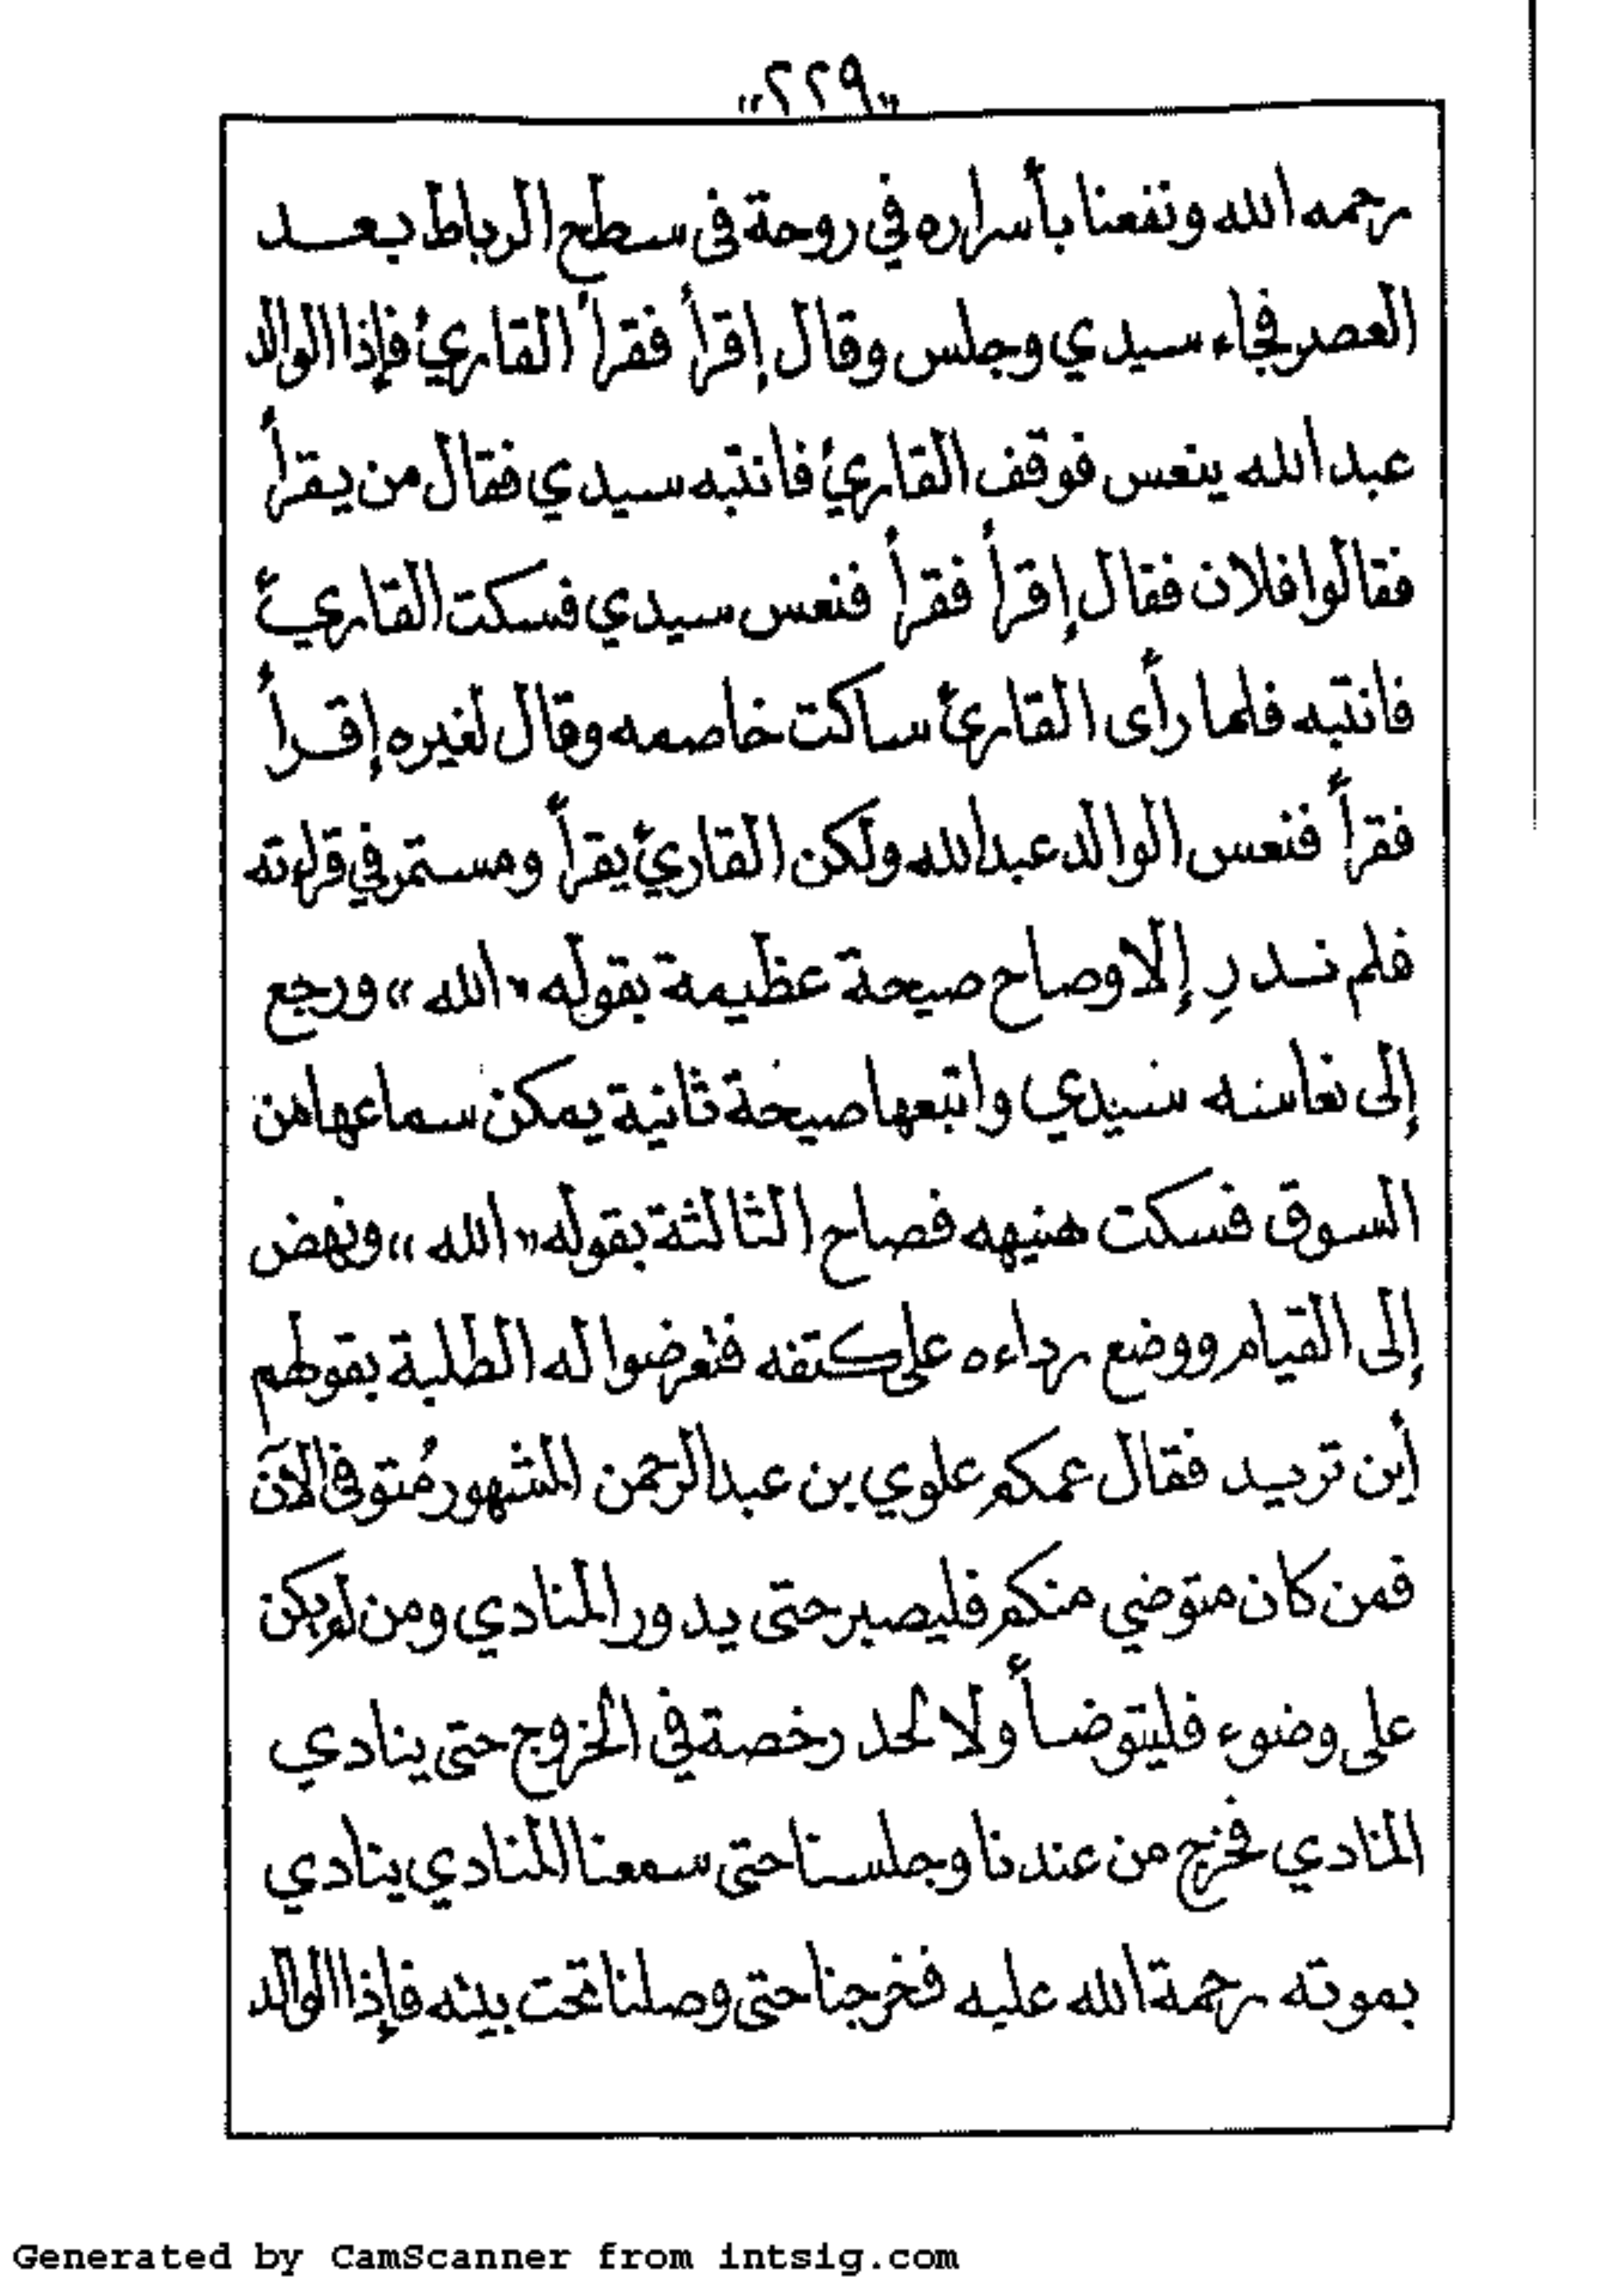 «٢٢٩»
رحمه الله ونفعنا بأسراره في روحة فى سطح الرباط بعد
العصر فجاء سيدي وجلس وقال إقرأ فقرأ القارئ فإذا الوالد
عبد الله ينعس فوقف القارئ فانتبه سيدي فقال من يقرأ
فقالوا فلان فقال إقرأ فقرأ فنعس سيدي فسكت القارئ
فانتبه فلما رأى القارئ ساكت خاصمه وقال لغيره إقرأ
فقرأ فنعس الوالد عبدالله ولكن القارئ يقرأ ومستمر في قراءته
فلم ندرِ إلا وصاح صيحة عظيمة بقوله «الله» ورجع
إلى نعاسه سيدي واتبعها صيحة ثانية يمكن سماعها من
السوق فسكت هنيهه فصاح الثالثة بقوله «الله» ونهض
إلى القيام ووضع رداءه على كتفه فتعرضوا له الطلبة بقولهم
أين تريد فقال عمكم علوي بن عبدالرحمن المشهور مُتوفى الآن
فمن كان متوضي منكم فليصبر حتى يدور المنادي ومن لم يكن
على وضوء فليتوضأ ولا لحد رخصة في الخروج حتى ينادي
المنادي فخرج من عندنا وجلسنا حتى سمعنا المنادي ينادي
بموته رحمة الله عليه فخرجنا حتى وصلنا تحت بيته فإذا الوالد
Generated by CamScanner from intsig.com